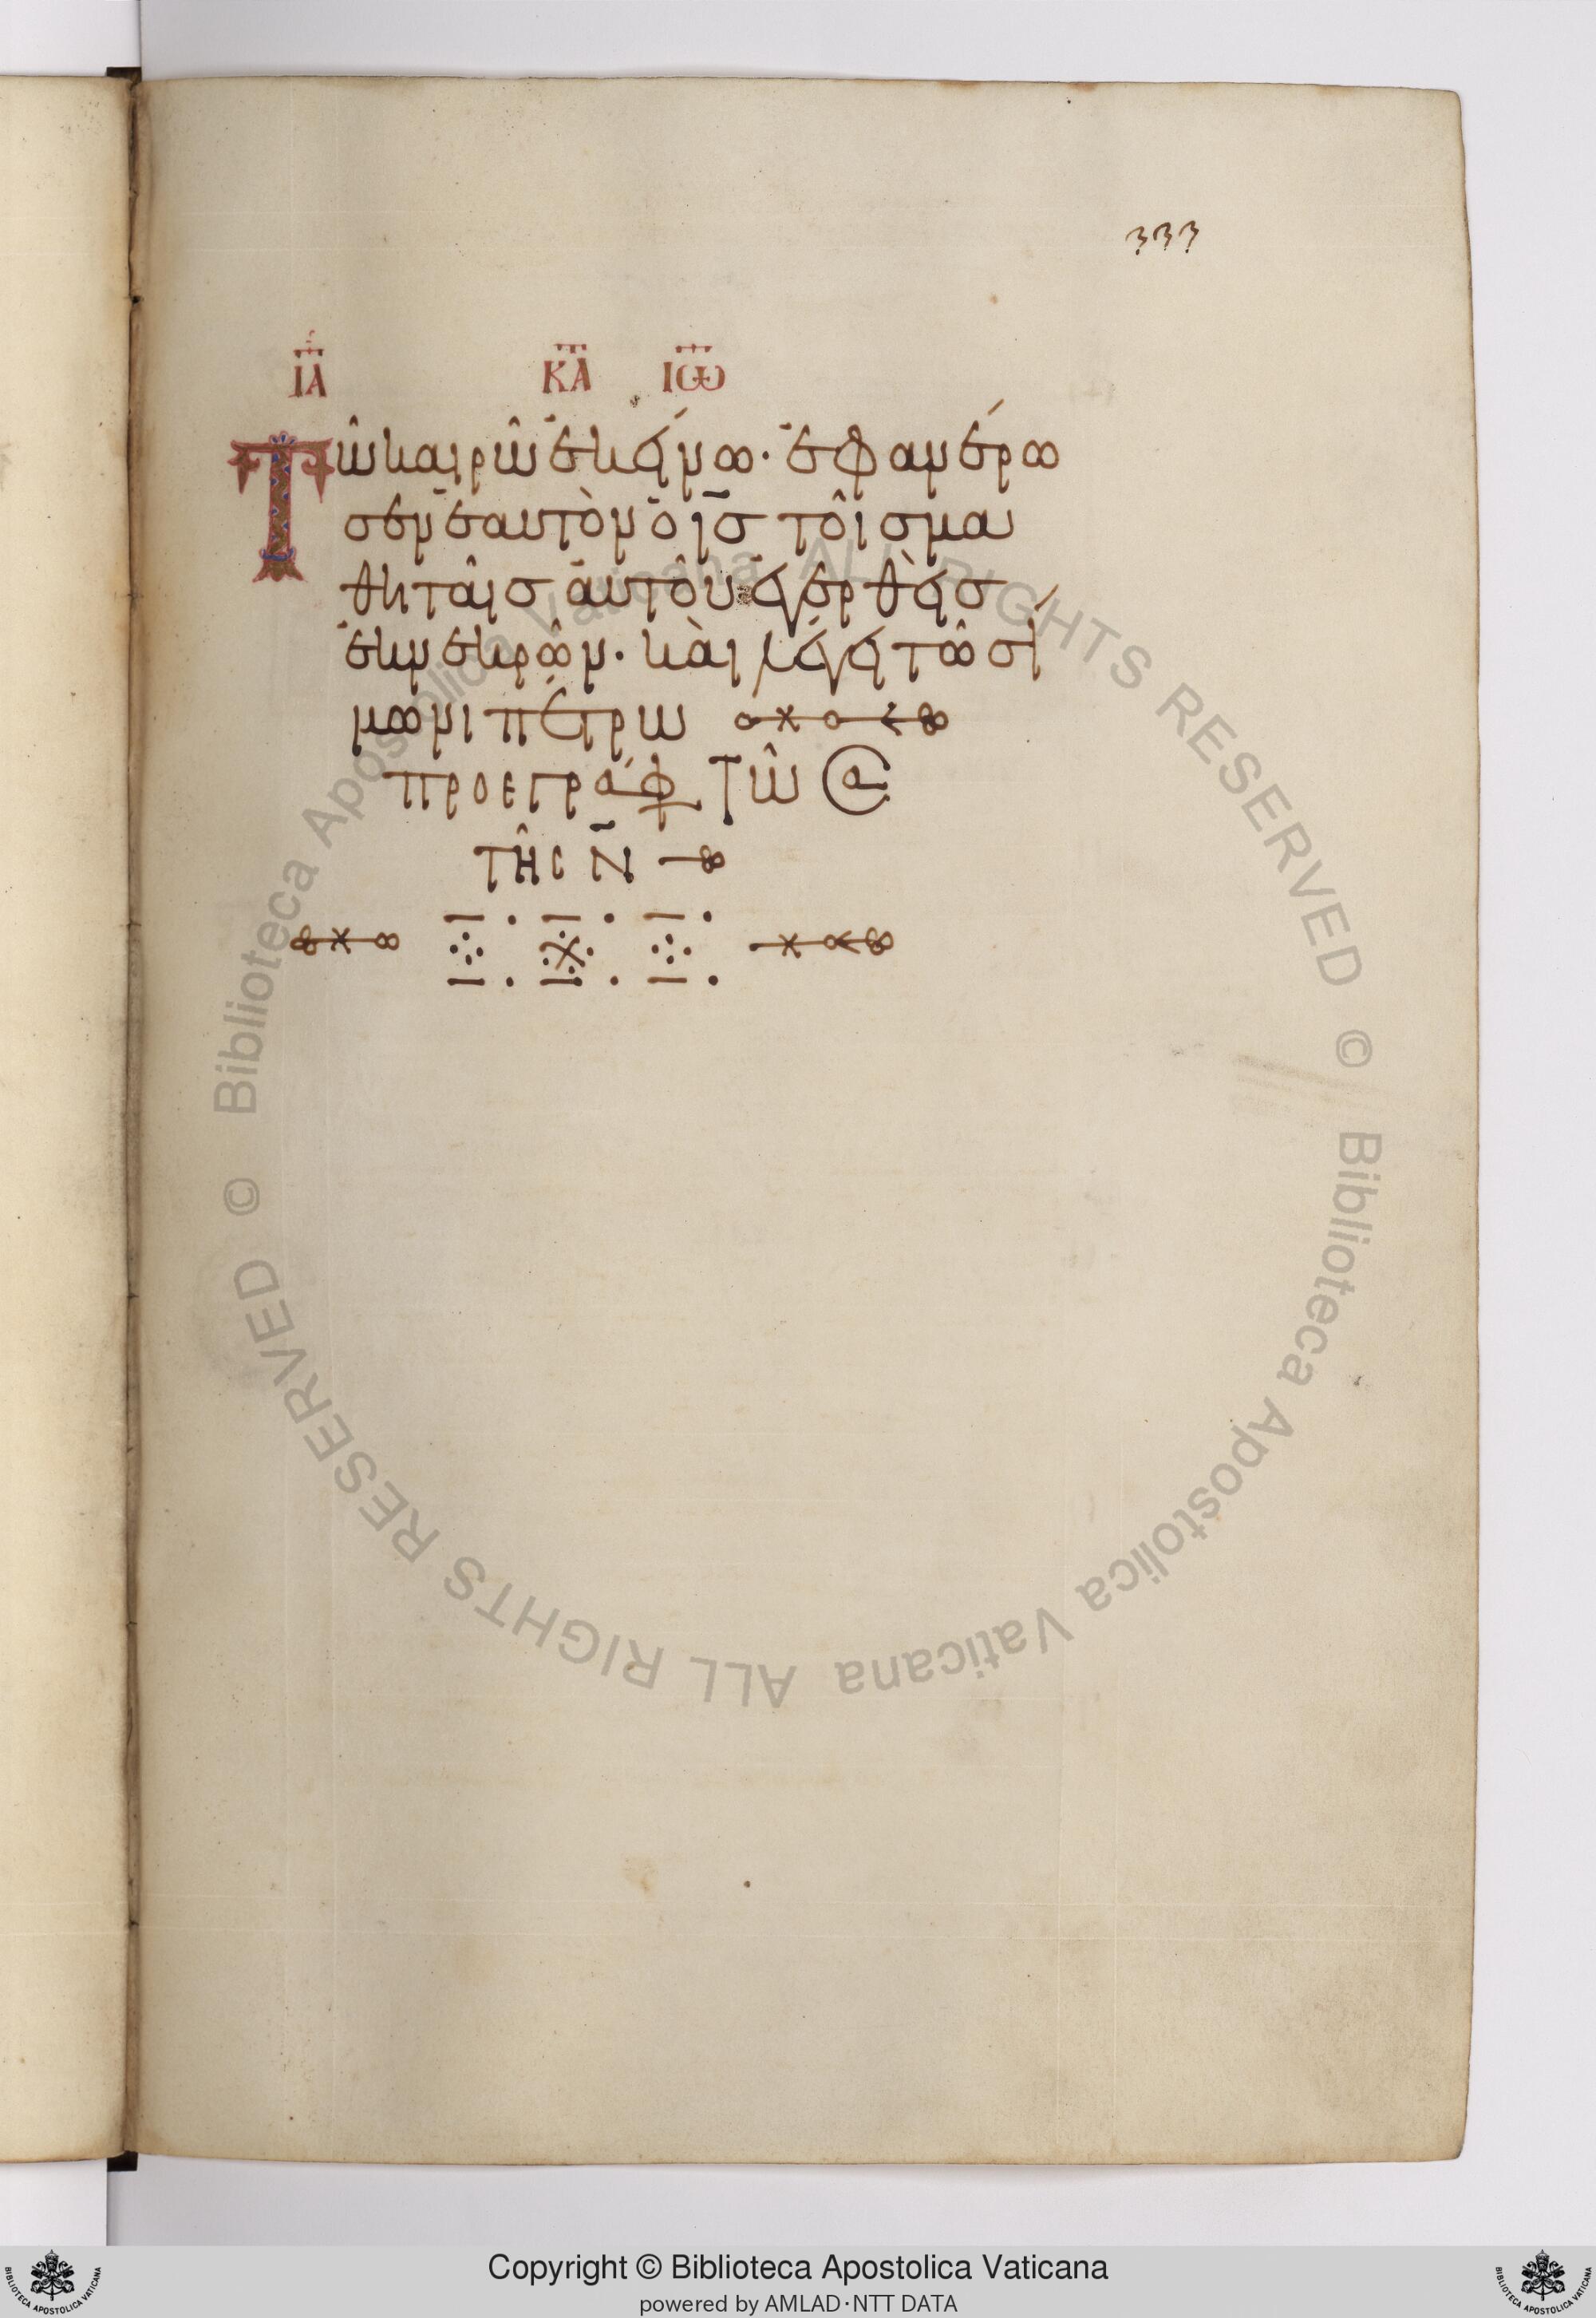 333
ΙΑ ΚΑ ΙΩ
Τῶ καιρῶ ἐκείνω· ἐφανέρω
σεν ἑαυτὸν ὁ ις τοῖς μα
θηταῖς αὐτοῦ ἐγερθεὶς
ἐκ νεκρῶν· καὶ λέγει τῶ σί
μωνι πέτρω
προεγράφ τῶ σα
τῆς ν
© Biblioteca Apostolica Vaticana ALL RIGHTS RESERVED © Biblioteca Apostolica Vaticana ALL RIGHTS RESERVED
Copyright © Biblioteca Apostolica Vaticana
powered by AMLAD·NTT DATA
BIBLIOTECA APOSTOLICA VATICANA
BIBLIOTECA APOSTOLICA VATICANA